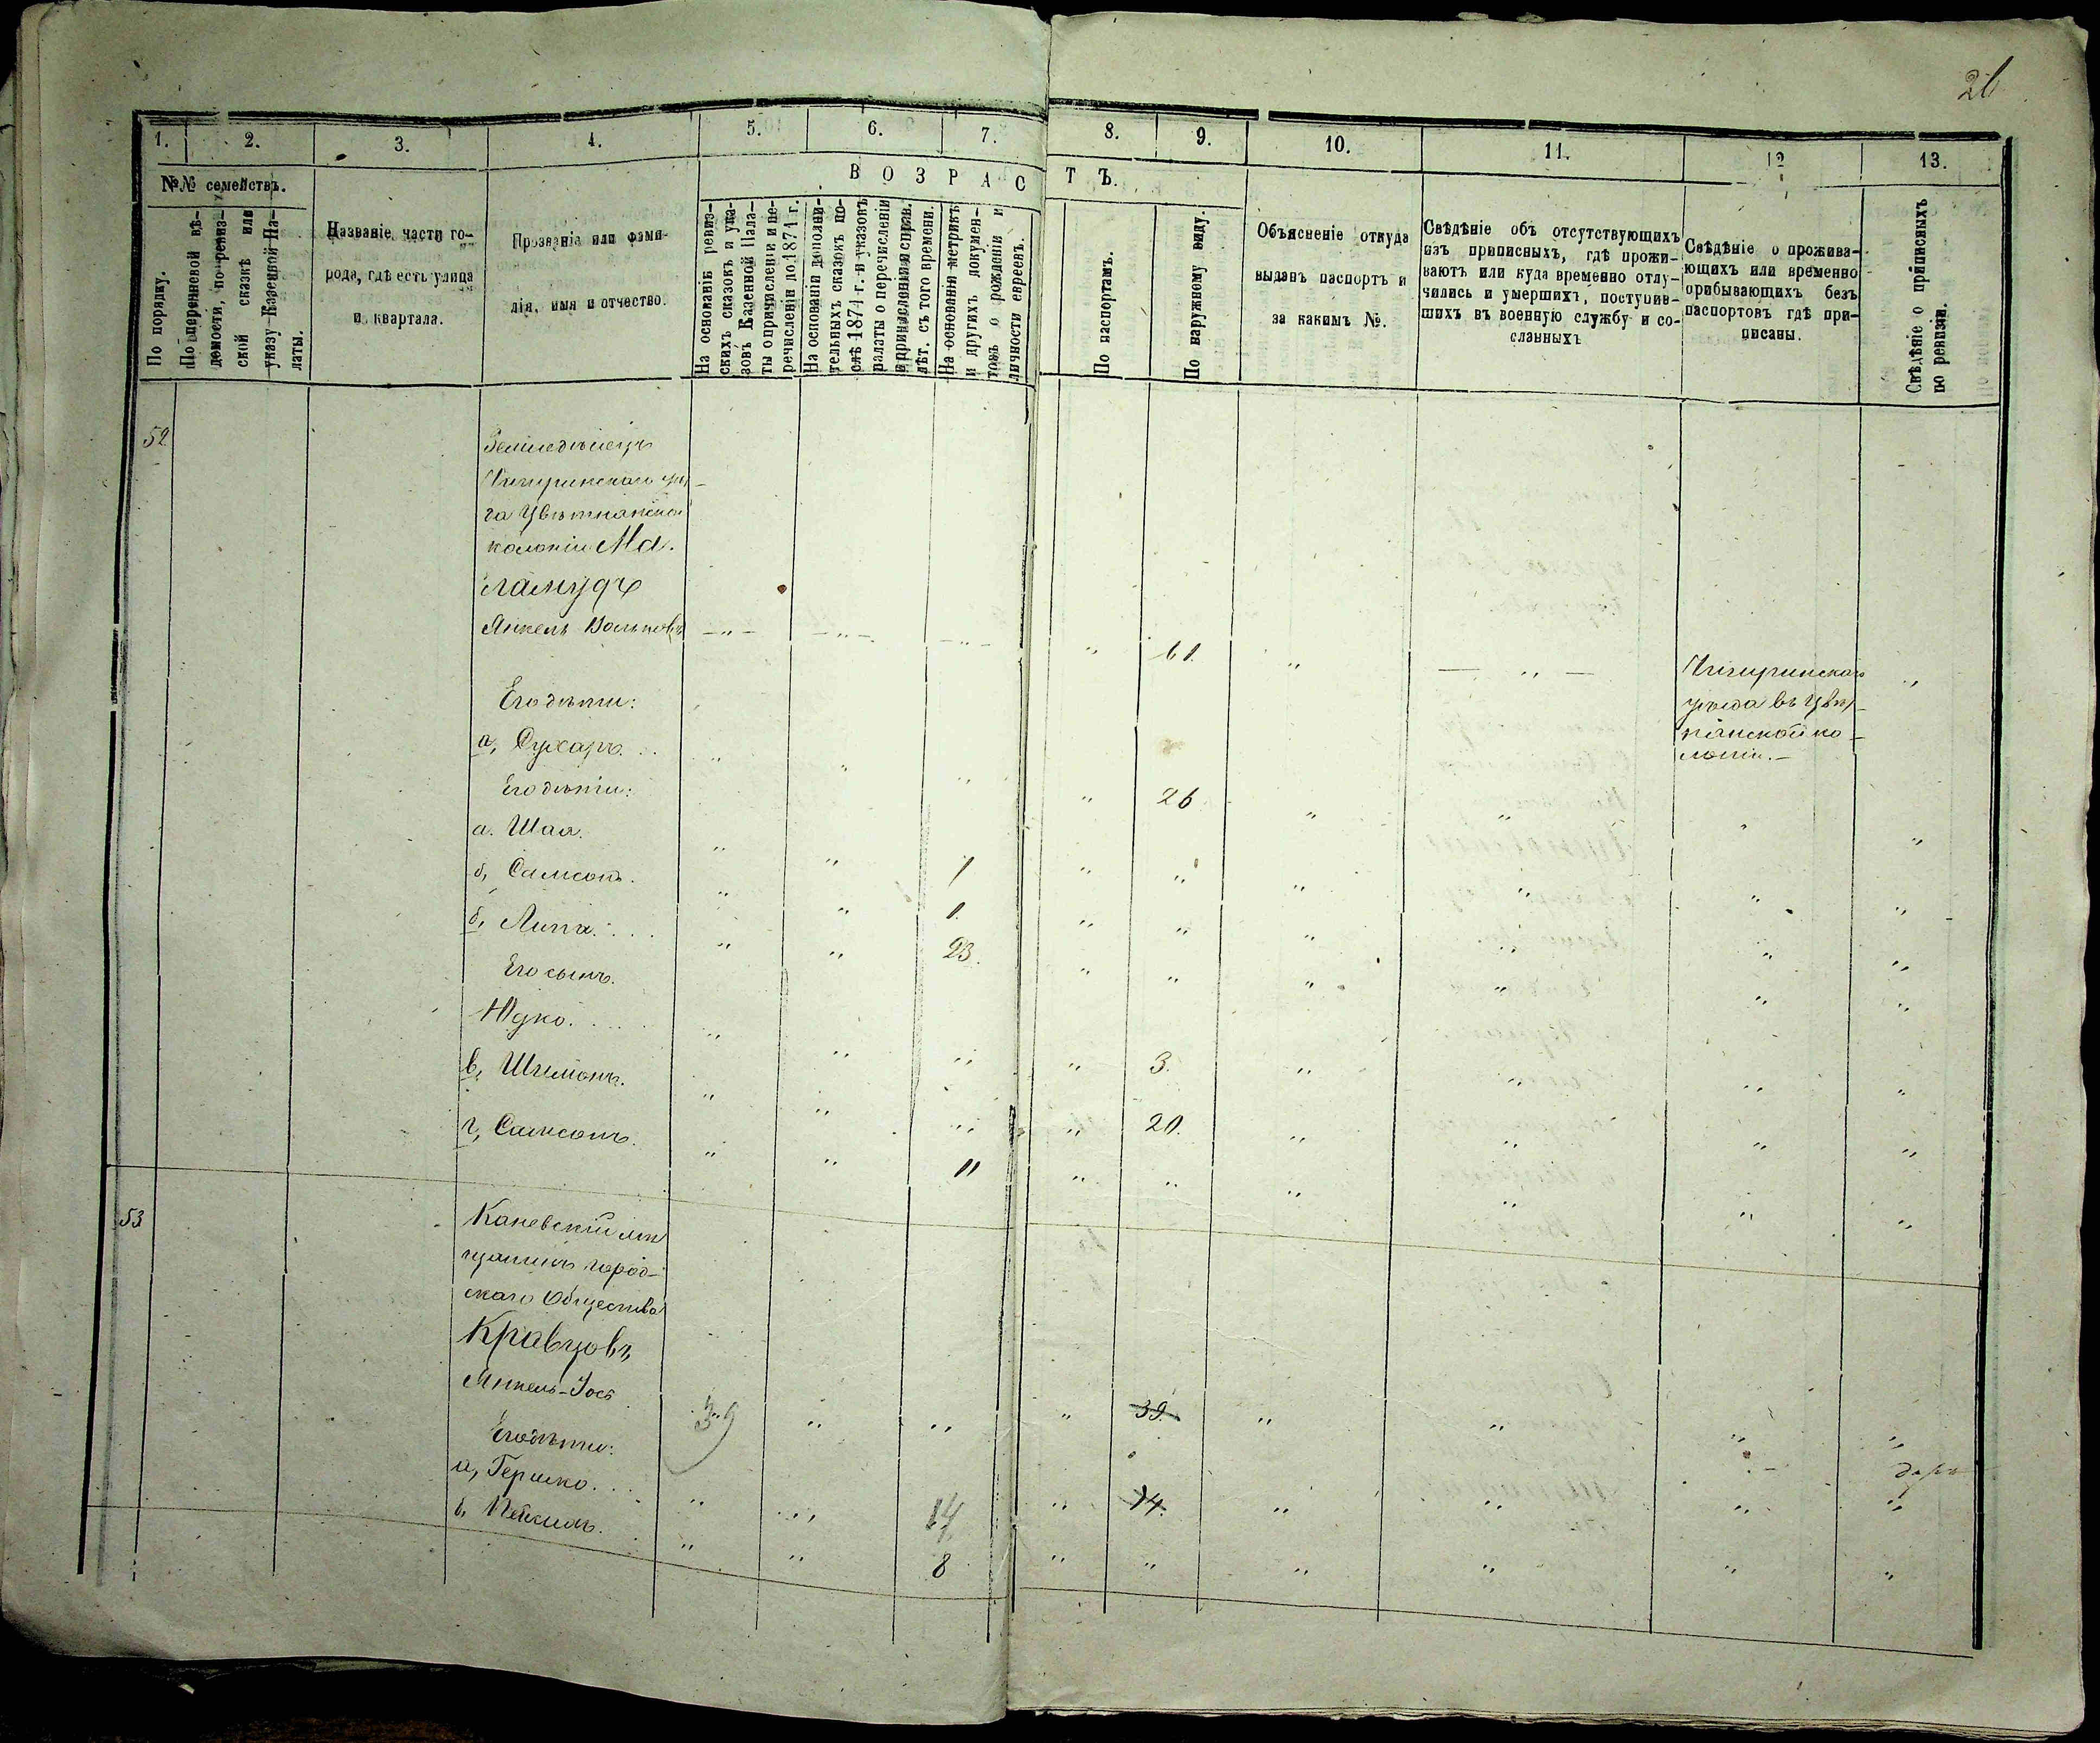 26
1. 2. 3. 4. 5. 6. 7. 8. 9. 10. 11. 12 13.
№№ семействъ.
ВОЗРАСТЪ.
По порядку.
По перечневой вѣ-
домости, по ревиз-
ской сказкѣ или
указу Казенной Па-
латы.
Названіе части го-
рода, гдѣ есть улица
и квартала.
Прозваніе или фами-
лія, имя и отчество.
На основаніи ревиз-
скихъ сказокъ и ука-
зовъ Казенной Пала-
ты о причисленіи и пе-
речисленіи до 1874 г.
На основаніи дополни-
тельныхъ сказокъ по-
слѣ 1874 г. и указокъ
палаты о перечисленіи
и причисленіи и справ.
лѣт. съ того времени.
На основаніи метрикъ
и другихъ документ-
товъ о рожденіи и
личности евреевъ.
По паспортамъ.
По наружному виду.
Объясненіе откуда
выданъ паспортъ и
за какимъ №.
Свѣдѣніе объ отсутствующихъ
изъ приписныхъ, гдѣ прожи-
ваютъ или куда временно отлу-
чились и умершихъ, поступив-
шихъ въ военную службу и со-
сланныхъ
Свѣдѣніе о прожива-
ющихъ или временно
прибывающихъ безъ
паспортовъ гдѣ при-
писаны.
Свѣдѣніе о приписныхъ
по ревизіи.
52
Земледѣлецъ
Чигиринскаго уѣз-
да Цвѣтнянской
колоніи Ма-
ламудъ
Янкель Вольковъ -"- -"- -"- " 61. " - " - Чигиринскаго "
уѣзда въ Цвѣт-
нянской ко-
лоніи.-
Его дѣти:
а, Сухаръ... " " " " 26 " " " "
Его дѣти:
а. Шая. " " 1 " " " " " "
б, Самсонъ. " " 1. " " " " " "
б, Липа.... " " 23. " " " " " "
Его сынъ.
Юдко..... " " " " 3. " " " "
в, Шимонъ. " " " " 20. " " " "
г, Самсонъ. " " 11 " " " " " "
53
Каневскій мѣ
щанинъ город-
скаго Общества
Кравцовъ
Янкель-Іосъ 39 " " " 39. " " " "
Его дѣти:
а, Гершко... " " 14 " 14. " " " "
б, " " 8 " " " " " "